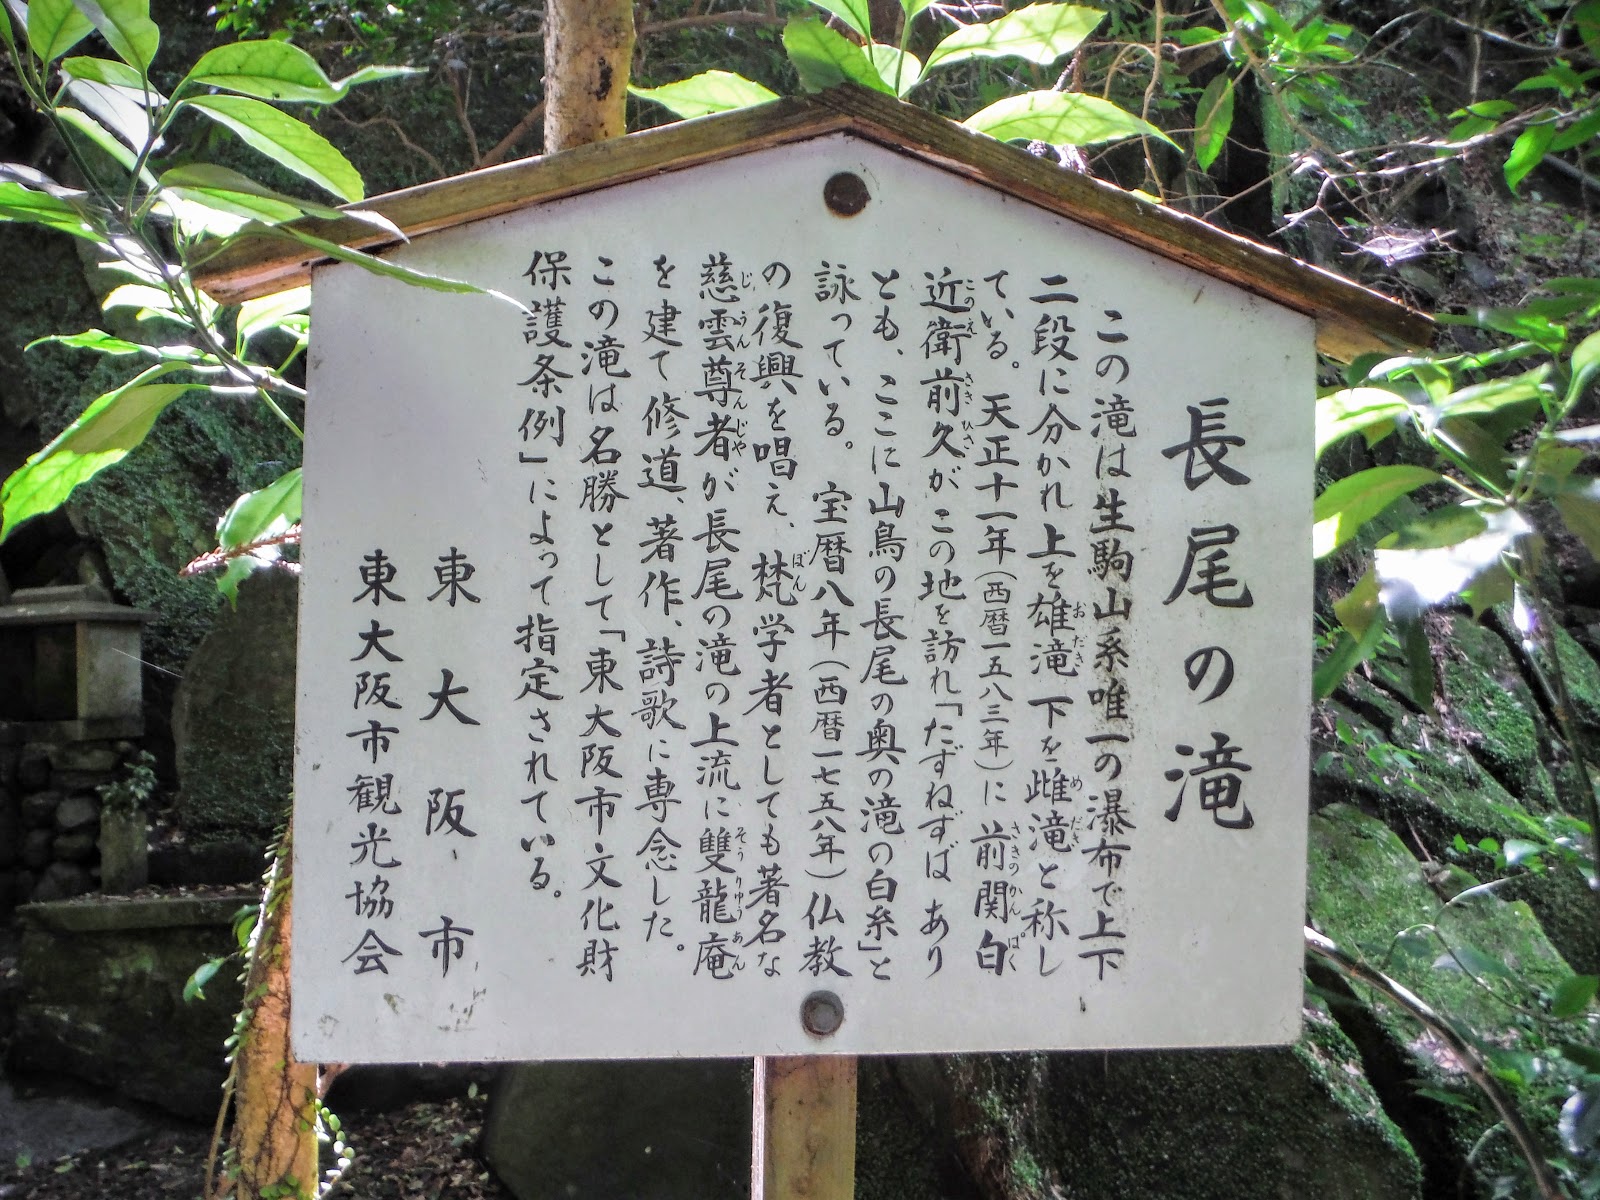 長尾の滝
この滝は生駒山系唯一の瀑布で上下
二段に分かれ上を雄滝下を雌滝と称し
ている。天正十一年(西暦一五八三年)に前関白
近衛前久がこの地を訪れ「たずねずば あり
とも、ここに山鳥の長尾の奥の滝の白糸」と
詠っている。 宝暦八年(西暦一七五八年)仏教
の復興を唱え、梵学者としても著名な
慈雲尊者が長尾の滝の上流に雙龍庵
を建て修道、著作、詩歌に専念した。
この滝は名勝として「東大阪市文化財
保護条例」によって指定されている。
東大阪市
東大阪市観光協会